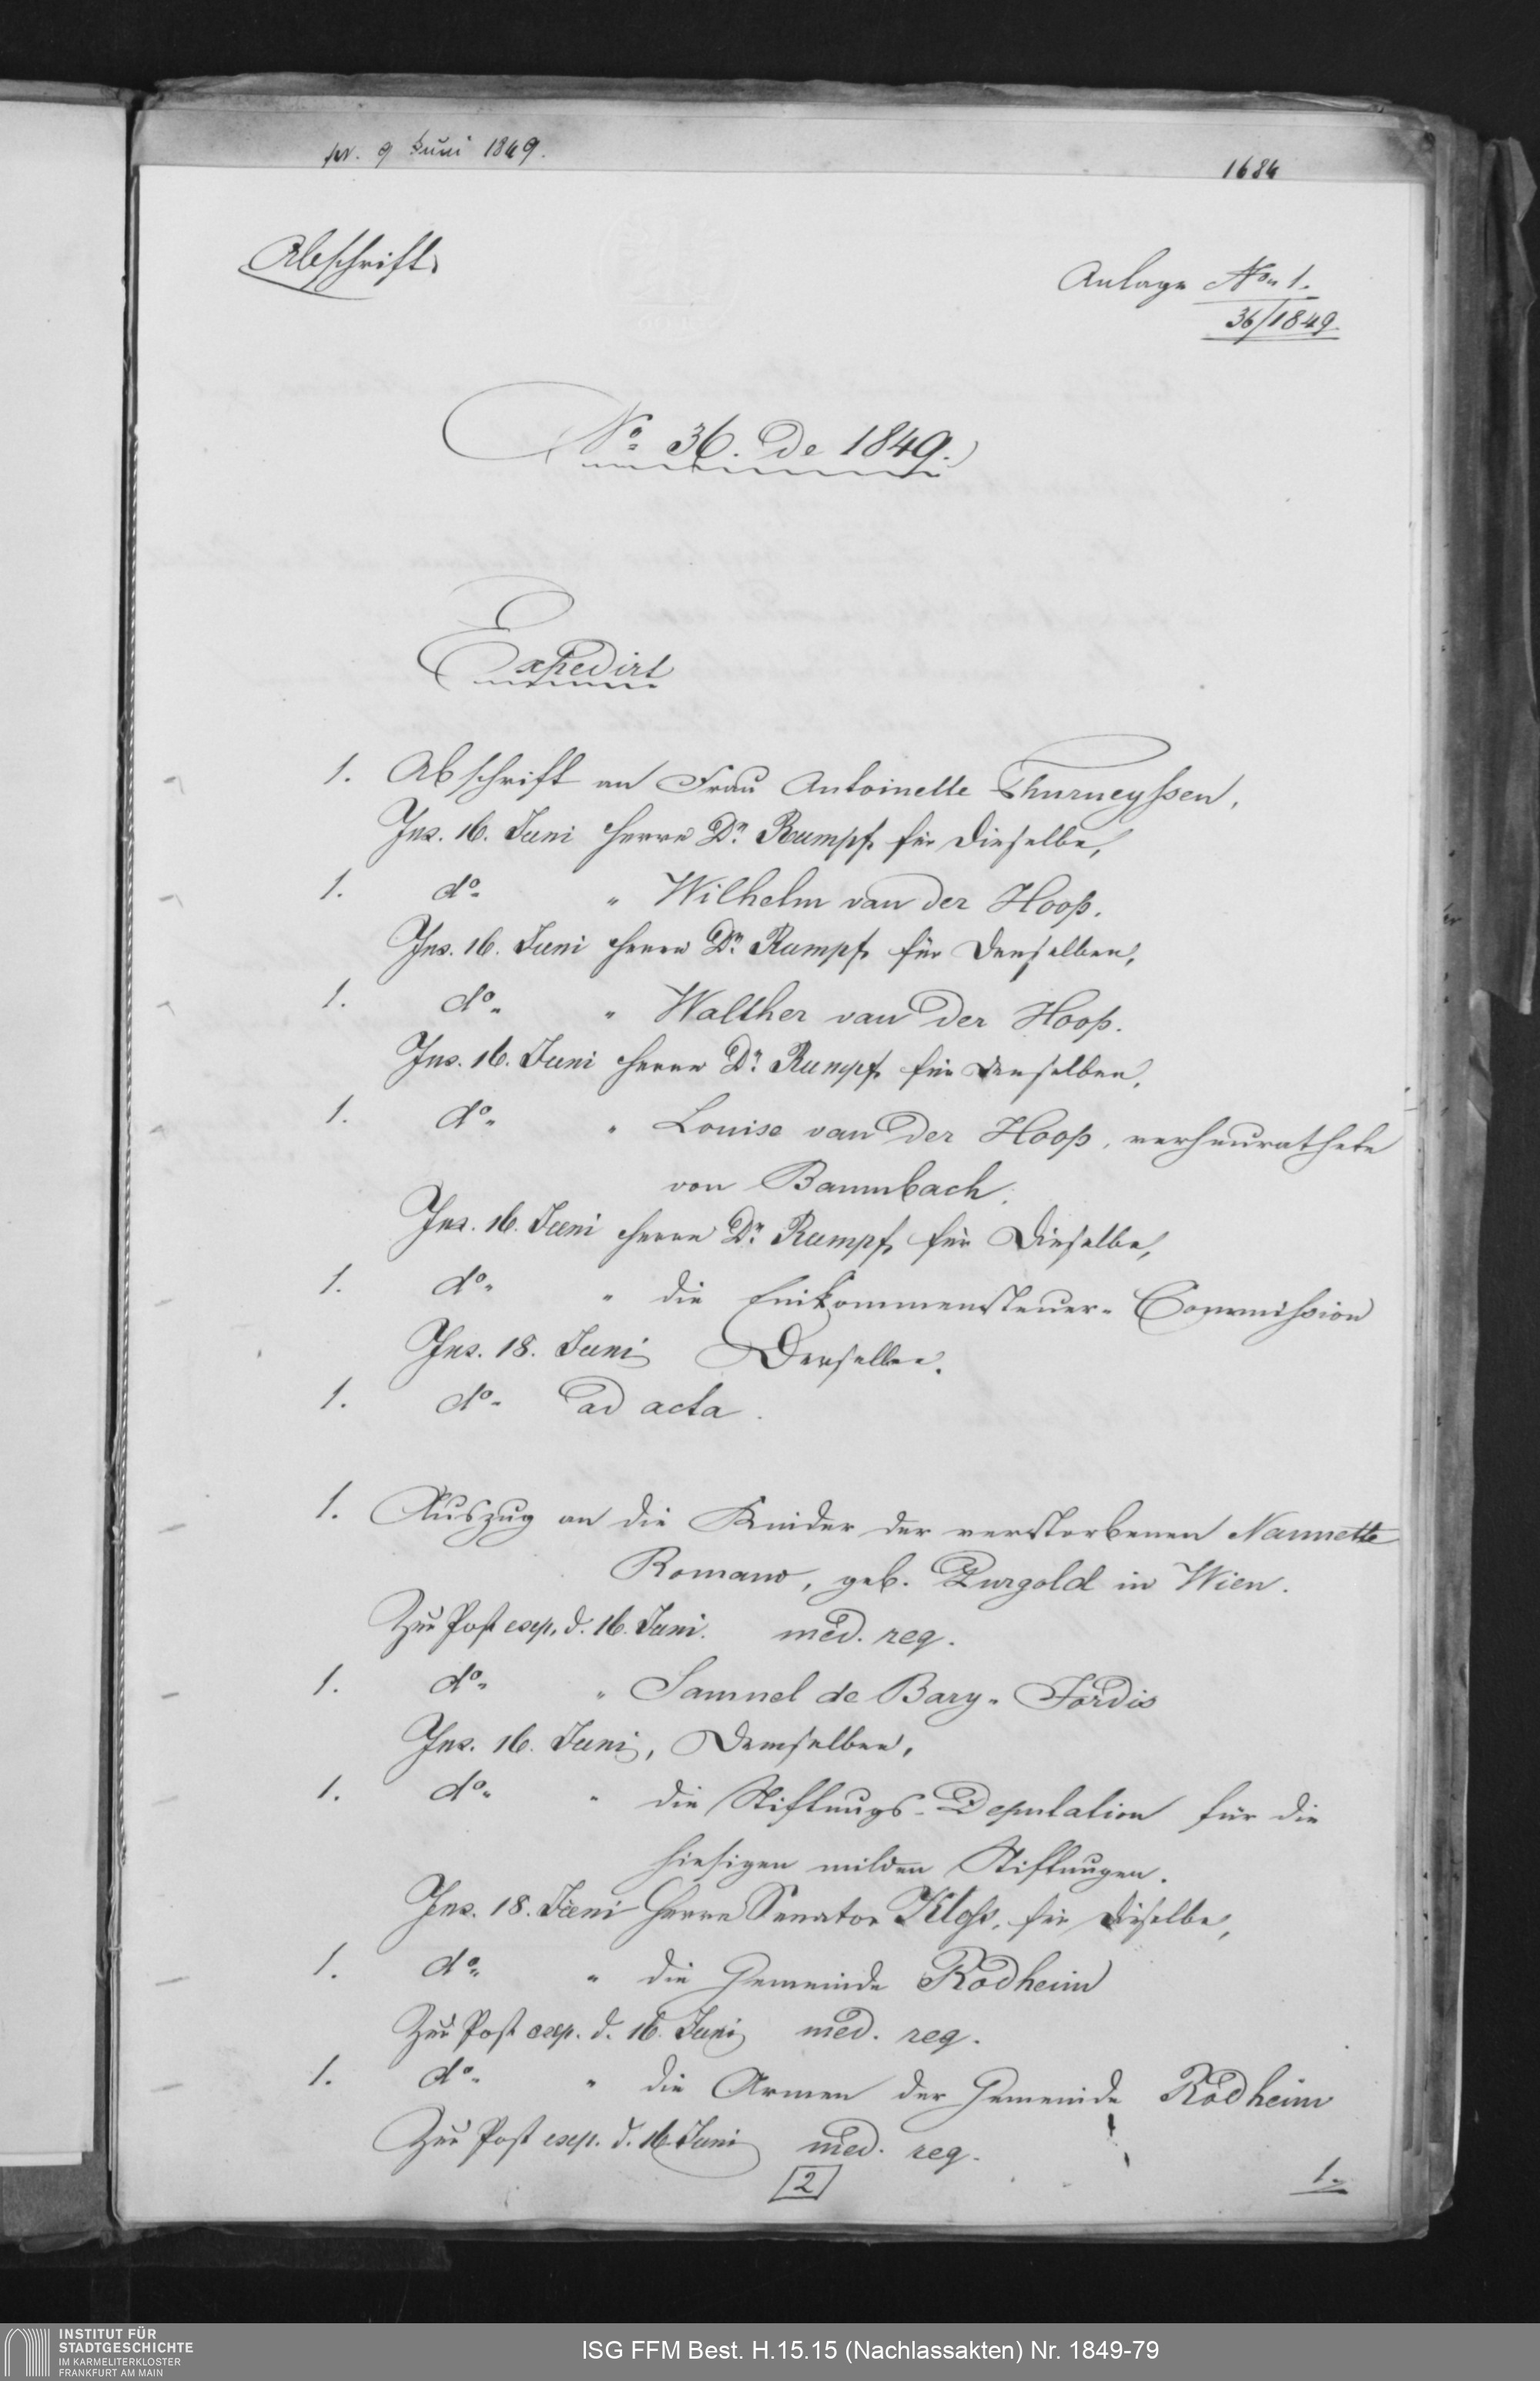 pr. 9 Juni 1849.
1684
Abschrift.
Anlage No. 1.
36/1849.
No. 36. de 1849.
Expedirt
1. Abschrift an Frau Antoinette Thurneyssen,
Ins. 16. Juni Herrn Dr. Rumpf, für dieselbe,
1. do. " Wilhelm van der Hoop.
Ins. 16. Juni Herrn Dr. Rumpf, für denselben,
1. do. " Walther van der Hoop.
Ins. 16. Juni Herrn Dr. Rumpf, für denselben,
1. do. " Louise van der Hoop, verheurathete
von Baumbach.
Ins. 16. Juni Herrn Dr. Rumpf, für dieselbe,
1. do. " die Einkommensteuer-Commission
Ins. 18. Juni Derselben.
1. do. ad acta.
1. Auszug an die Kinder der verstorbenen Nannette
Romano, geb. Purgold in Wien.
Zur Post exp. d. 16. Juni. med. req.
1. do. " Samuel de Bary-Jordis
Ins. 16. Juni, Demselben,
1. do. " die Stiftungs-Deputation für die
hiesigen milden Stiftungen.
Ins. 18. Juni Herrn Senator Kloss, für dieselbe,
1. do. " die Gemeinde Rodheim
Zur Post exp. d. 16. Juni med. req.
1. do. " die Armen der Gemeinde Rodheim
Zur Post exp. d. 16 Juni med. req.
2
1.
INSTITUT FÜR
STADTGESCHICHTE
IM KARMELITERKLOSTER
FRANKFURT AM MAIN
ISG FFM Best. H.15.15 (Nachlassakten) Nr. 1849-79